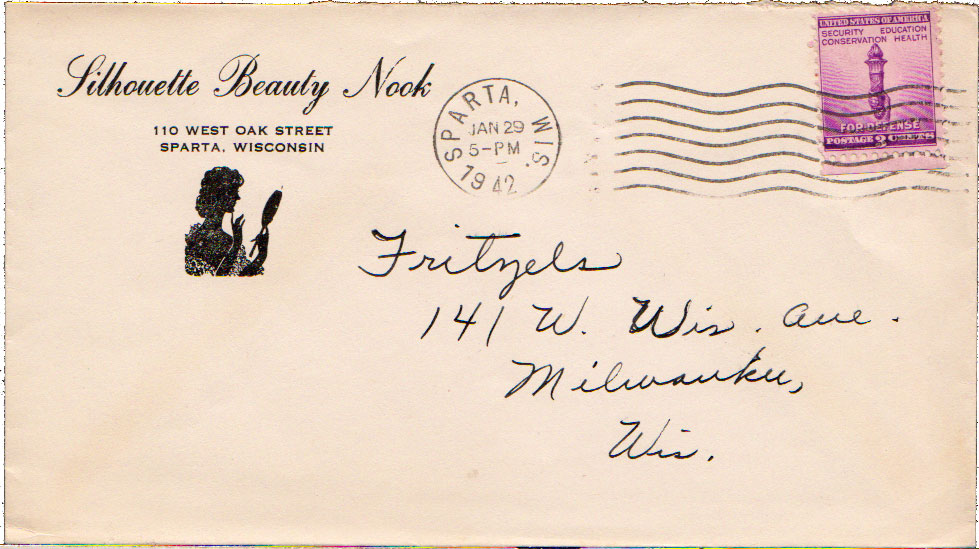 Silhouette Beauty Nook
110 WEST OAK STREET
SPARTA, WISCONSIN
SPARTA, WIS.
JAN 29
5-PM
1942
UNITED STATES OF AMERICA
SECURITY EDUCATION
CONSERVATION HEALTH
FOR DEFENSE
POSTAGE 3 CENTS
Fritzels
141 W. Wis. Ave.
Milwaukee,
Wis.